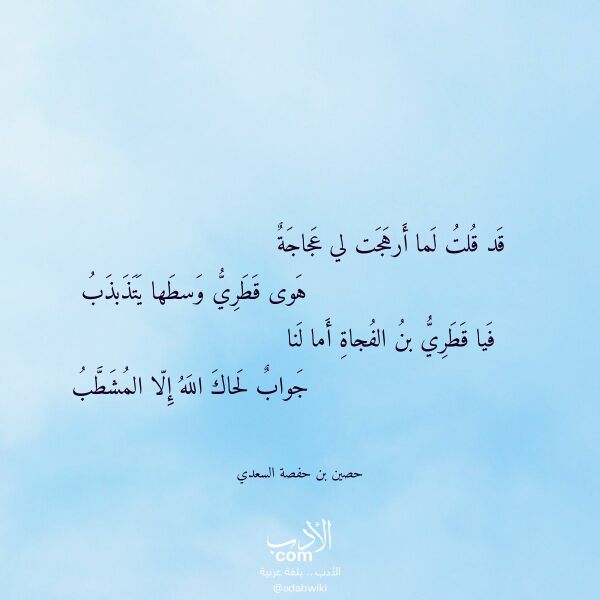 قَد قُلتُ لَما أَرهَجَت لي عَجاجَةٌ
هَوى قَطَرِيُّ وَسطَها يَتَذَبذَبُ
فَيا قَطَرِيُّ بنُ الفُجاةِ أَما لَنا
جَوابٌ لَحاكَ اللَهُ إِلّا المُشَطَّبُ
حصين بن حفصة السعدي
الأدب
com
الأدب .. بلغة عربية
@adabwiki